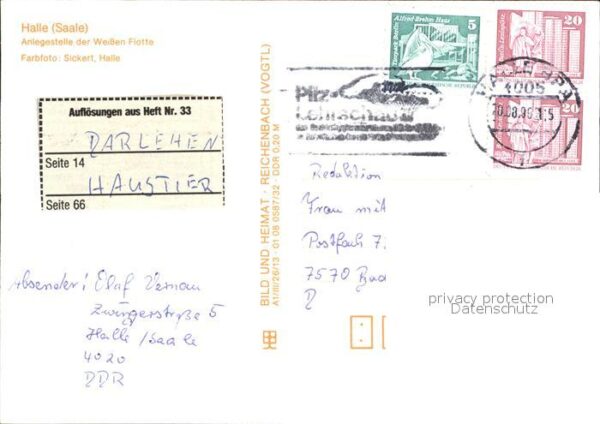 Halle (Saale)
Anlegestelle der Weißen Flotte
Farbfoto: Sickert, Halle
Auflösungen aus Heft Nr. 33
DARLEHEN
Seite 14
HAUSTIER
Seite 66
Absender: Olaf Vernau
Zwingerstraße 5
Halle/Saale
4020
DDR
BILD UND HEIMAT · REICHENBACH (VOGTL)
A1/III/26/13 · 01 08 0587/32 · DDR 0,20 M
Alfred-Brehm-Haus
5
Tierpark Berlin
20
20
Pilz-
Lehrschau
HALLE
4005
Redaktion
Frau mit
Postfach 7.
7570 Bad
D
privacy protection
Datenschutz